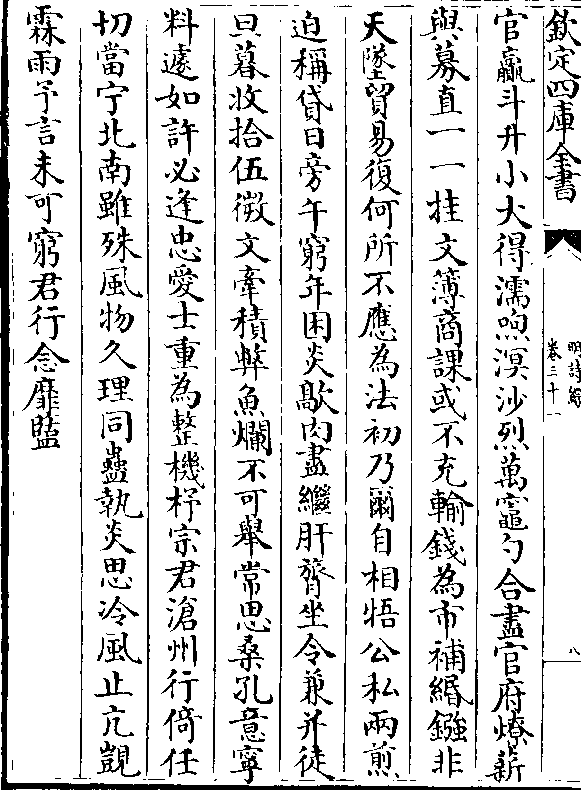 欽定四庫全書
明詩綜
卷三十一
八
官贏斗升小大得濡喣溟沙烈萬竈勺合盡官府燎薪
與募直一一挂文簿商課或不充輸錢為市補緡鏹非
天墜貿易復何所不應為法初乃爾自相牾公私兩煎
迫稱貸日旁午窮年困炎歊肉盡繼肝膂坐令兼并徒
旦暮收拾伍微文牽積弊魚爛不可舉常思桑孔意寧
料遽如許必逢忠愛士重為整機杼宗君滄州行倚任
切當宁北南雖殊風物久理同蠱執炎思冷風止亢覬
霖雨予言未可窮君行念靡盬